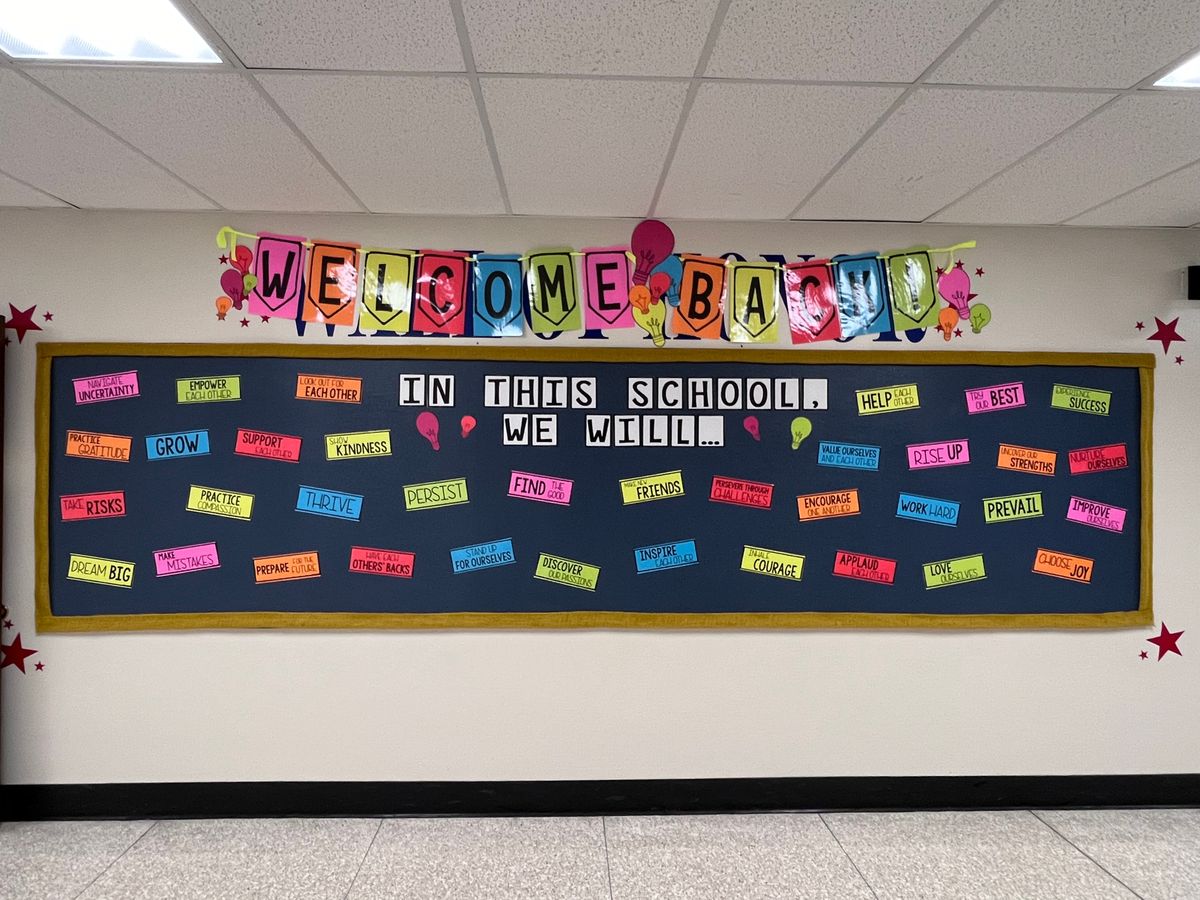 WELCOME BACK!
IN THIS SCHOOL,
WE WILL...
NAVIGATE
UNCERTAINTY
EMPOWER
EACH OTHER
LOOK OUT FOR
EACH OTHER
HELP EACH
OTHER
TRY
OUR BEST
EXPERIENCE
SUCCESS
PRACTICE
GRATITUDE
GROW
SUPPORT
EACH OTHER
SHOW
KINDNESS
VALUE OURSELVES
AND EACH OTHER
RISE UP
UNCOVER OUR
STRENGTHS
NURTURE
OURSELVES
TAKE RISKS
PRACTICE
COMPASSION
THRIVE
PERSIST
FIND THE
GOOD
MAKE NEW
FRIENDS
PERSEVERE THROUGH
CHALLENGES
ENCOURAGE
ONE ANOTHER
WORK HARD
PREVAIL
IMPROVE
OURSELVES
DREAM BIG
MAKE
MISTAKES
PREPARE FOR THE
FUTURE
HAVE EACH
OTHERS' BACKS
STAND UP
FOR OURSELVES
DISCOVER
OUR PASSIONS
INSPIRE
EACH OTHER
INHALE
COURAGE
APPLAUD
EACH OTHER
LOVE
OURSELVES
CHOOSE
JOY